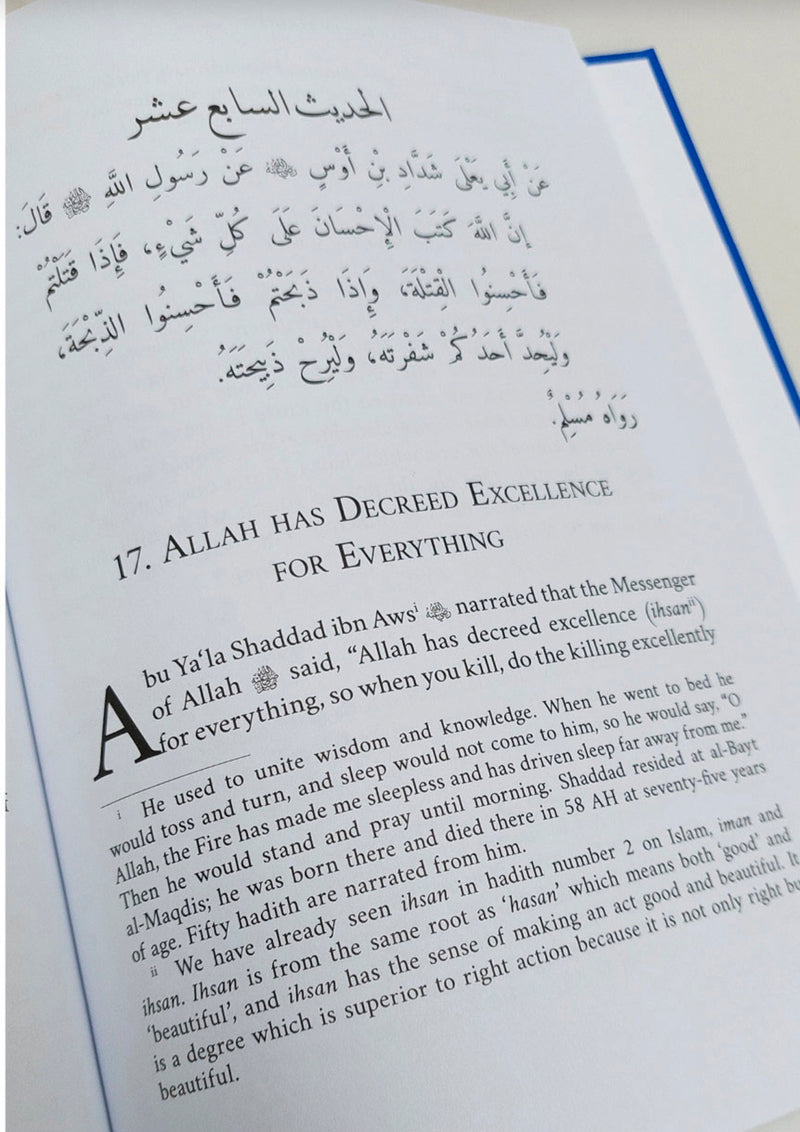 الحديث السابع عشر
عَنْ أَبِي يَعْلَى شَدَّادِ بْنِ أَوْسٍ ﵁ عَنْ رَسُولِ اللَّهِ ﷺ قَالَ:
إِنَّ اللَّهَ كَتَبَ الْإِحْسَانَ عَلَى كُلِّ شَيْءٍ، فَإِذَا قَتَلْتُمْ
فَأَحْسِنُوا الْقِتْلَةَ، وَإِذَا ذَبَحْتُمْ فَأَحْسِنُوا الذِّبْحَةَ،
وَلْيُحِدَّ أَحَدُكُمْ شَفْرَتَهُ، وَلْيُرِحْ ذَبِيحَتَهُ.
رَوَاهُ مُسْلِمٌ.
17. ALLAH HAS DECREED EXCELLENCE
FOR EVERYTHING
Abu Ya‘la Shaddad ibn Awsⁱ ﵁ narrated that the Messenger
of Allah ﷺ said, “Allah has decreed excellence (ihsanⁱⁱ)
for everything, so when you kill, do the killing excellently
i He used to unite wisdom and knowledge. When he went to bed he
would toss and turn, and sleep would not come to him, so he would say, “O
Allah, the Fire has made me sleepless and has driven sleep far away from me.”
Then he would stand and pray until morning. Shaddad resided at al-Bayt
al-Maqdis; he was born there and died there in 58 AH at seventy-five years
of age. Fifty hadith are narrated from him.
ii We have already seen ihsan in hadith number 2 on Islam, iman and
ihsan. Ihsan is from the same root as ‘hasan’ which means both ‘good’ and
‘beautiful’, and ihsan has the sense of making an act good and beautiful. It
is a degree which is superior to right action because it is not only right bu
beautiful.